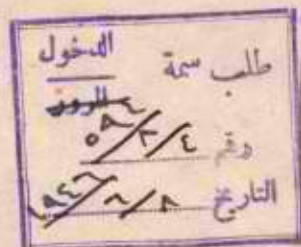 طلب سمة الدخول
للمرور
رقم ٥٨/٣/٤
التاريخ